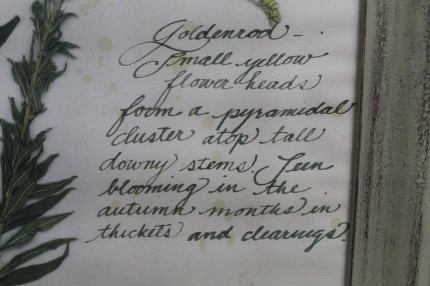 Goldenrod -
Small yellow
flower heads
form a pyramidal
cluster atop tall
downy stems. Seen
blooming in the
autumn months in
thickets and clearings.